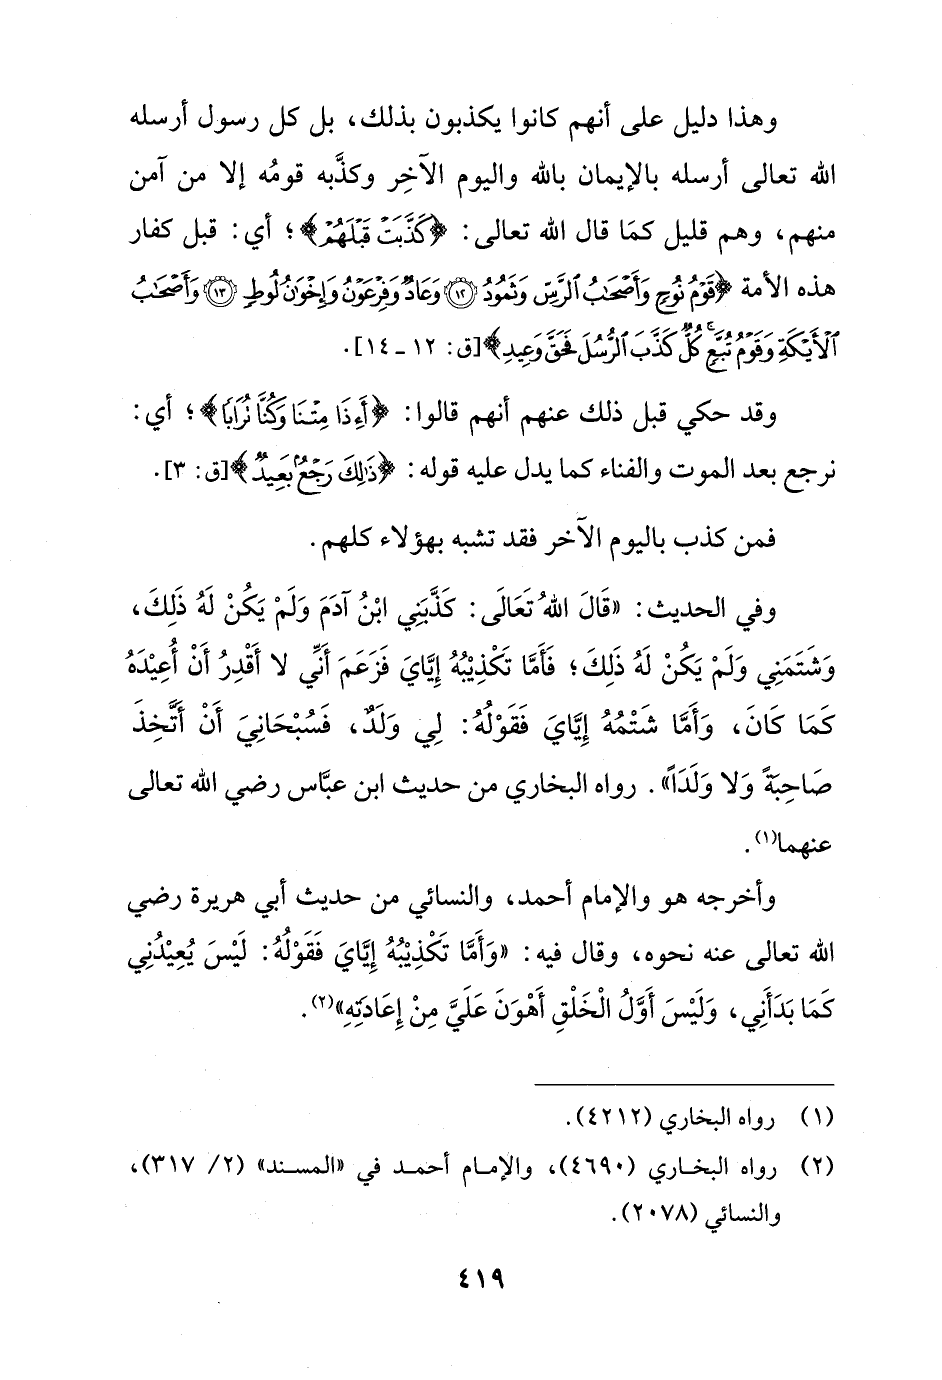 وهذا دليل على أنهم كانوا يكذبون بذلك، بل كل رسول أرسله
الله تعالى أرسله بالإيمان بالله واليوم الآخِر وكذَّبه قومُه إلا من آمن
منهم، وهم قليل كمَا قال الله تعالى: ﴿كَذَّبَتۡ قَبۡلَهُمۡ﴾؛ أي: قبل كفار
هذه الأمة ﴿قَوۡمُ نُوحٖ وَأَصۡحَٰبُ ٱلرَّسِّ وَثَمُودُ ١٢ وَعَادٞ وَفِرۡعَوۡنُ وَإِخۡوَٰنُ لُوطٖ ١٣ وَأَصۡحَٰبُ
ٱلۡأَيۡكَةِ وَقَوۡمُ تُبَّعٖۚ كُلّٞ كَذَّبَ ٱلرُّسُلَ فَحَقَّ وَعِيدِ﴾ [ق: ١٢ ـ ١٤].
وقد حكي قبل ذلك عنهم أنهم قالوا: ﴿أَءِذَا مِتۡنَا وَكُنَّا تُرَابٗا﴾؛ أي:
نرجع بعد الموت والفناء كما يدل عليه قوله: ﴿ذَٰلِكَ رَجۡعُۢ بَعِيدٞ﴾ [ق: ٣].
فمن كذب باليوم الآخر فقد تشبه بهؤلاء كلهم.
وفي الحديث: «قَالَ اللهُ تَعَالَى: كَذَّبَنِي ابْنُ آدَمَ وَلَمْ يَكُنْ لَهُ ذَلِكَ،
وَشَتَمَنِي وَلَمْ يَكُنْ لَهُ ذَلِكَ؛ فَأَمَّا تَكْذِيْبُهُ إِيَّايَ فَزَعَمَ أَنِّي لا أَقْدِرُ أَنْ أُعِيْدَهُ
كَمَا كَانَ، وَأَمَّا شَتْمُهُ إِيَّايَ فَقَوْلُهُ: لِي وَلَدٌ، فَسُبْحَانِيَ أَنْ أَتَّخِذَ
صَاحِبَةً وَلا وَلَدَاً». رواه البخاري من حديث ابن عبَّاس رضي الله تعالى
عنهما(١).
وأخرجه هو والإمام أحمد، والنسائي من حديث أبي هريرة رضي
الله تعالى عنه نحوه، وقال فيه: «وَأَمَّا تَكْذِيْبُهُ إِيَّايَ فَقَوْلُهُ: لَيْسَ يُعِيْدُنِي
كَمَا بَدَأَنِي، وَلَيْسَ أَوَّلُ الْخَلْقِ أَهْوَنَ عَلَيَّ مِنْ إِعَادَتِهِ»(٢).
(١) رواه البخاري (٤٢١٢).
(٢) رواه البخاري (٤٦٩٠)، والإمام أحمد في «المسند» (٢/ ٣١٧)،
والنسائي (٢٠٧٨).
٤١٩